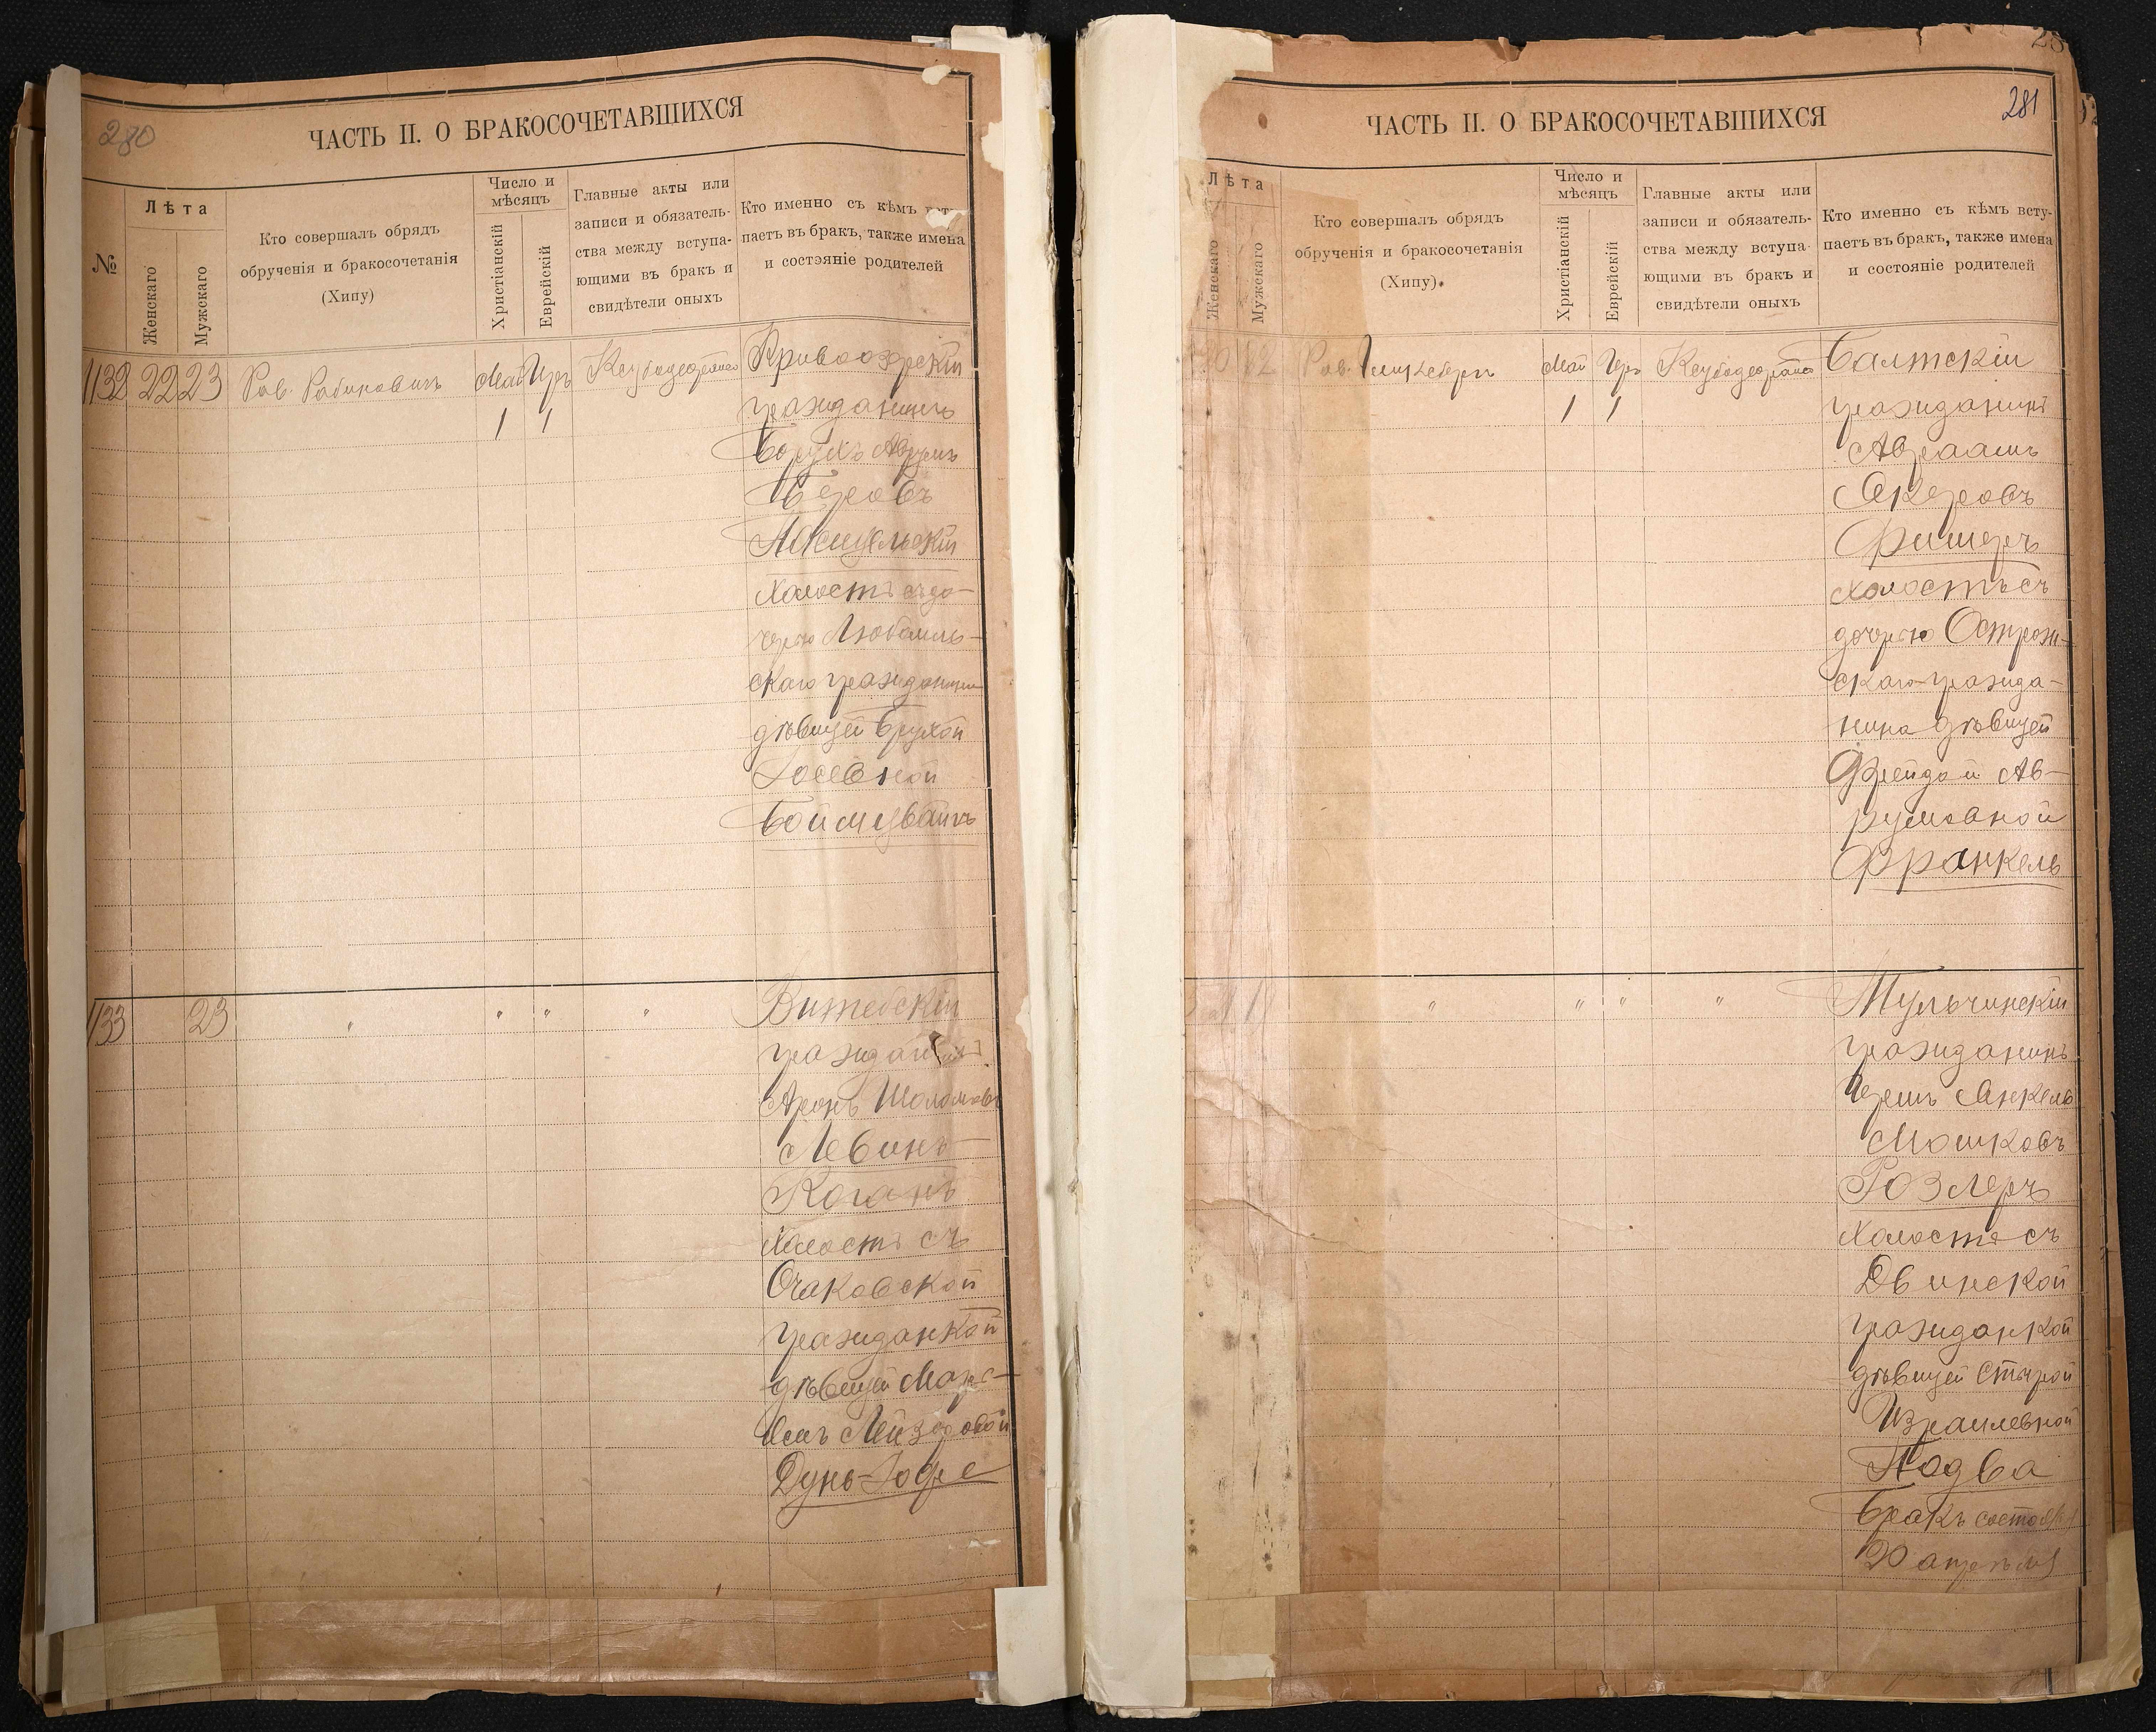 280
ЧАСТЬ II. О БРАКОСОЧЕТАВШИХСЯ
№
Лѣта
Женскаго
Мужскаго
Кто совершалъ обрядъ
обрученія и бракосочетанія
(Хипу)
Число и
мѣсяцъ
Христіанскій
Еврейскій
Главные акты или
записи и обязатель-
ства между вступа-
ющими въ бракъ и
свидѣтели оныхъ
Кто именно съ кѣмъ
паетъ въ бракъ, также имена
и состэяніе родителей
1132 22 23 Рав. Рабиновичъ Май Иръ Кривоозерскій
1 1 гражданинъ
Борухъ Аврумъ
Беровъ
холостъ съ до-
черью Любомль-
скаго гражданина
дѣвицей Брухой
Іосевной
Боймцвайгъ
1133 23 " " " " Витебскій
гражданинъ
Аронъ Шоломовъ
Левинъ
Коганъ
холостъ съ
Очаковской
гражданкой
дѣвицей
Лейзеровой
Дунь-Іофе
28
281
ЧАСТЬ II. О БРАКОСОЧЕТАВШИХСЯ
Лѣта
Женскаго
Мужскаго
Кто совершалъ обрядъ
обрученія и бракосочетанія
(Хипу)
Число и
мѣсяцъ
Христіанскій
Еврейскій
Главные акты или
записи и обязатель-
ства между вступа-
ющими въ бракъ и
свидѣтели оныхъ
Кто именно съ кѣмъ всту-
паетъ въ бракъ, также имена
и состояніе родителей
Рав. Май Иръ Балтскій
1 1 гражданинъ
Авраамъ
Фишеръ
холостъ съ
дочерью Острож-
скаго гражда-
нина дѣвицей
Фрейдой Ав-
румовной
Франкель
" " " " Тульчинскій
гражданинъ
Янкель
Мошковъ
Розлеръ
холостъ съ
Двинской
гражданкой
дѣвицей Стырой
Израилевной
Подва
Бракъ состоялся
20 апрѣля